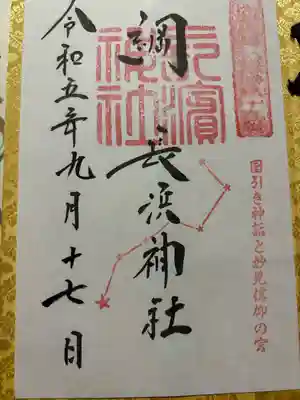 国引き神話と妙見信仰の宮
長浜神社
長濱
神社
令和五年九月十七日